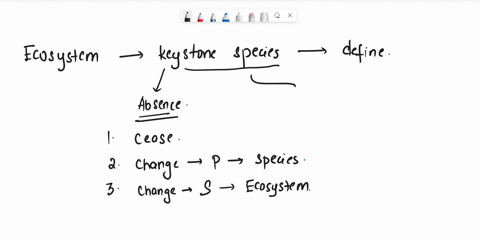 Ecosystem → keystone species → define.
Absence.
1. Cease.
2. Change → P → species.
3. Change → S → Ecosystem.